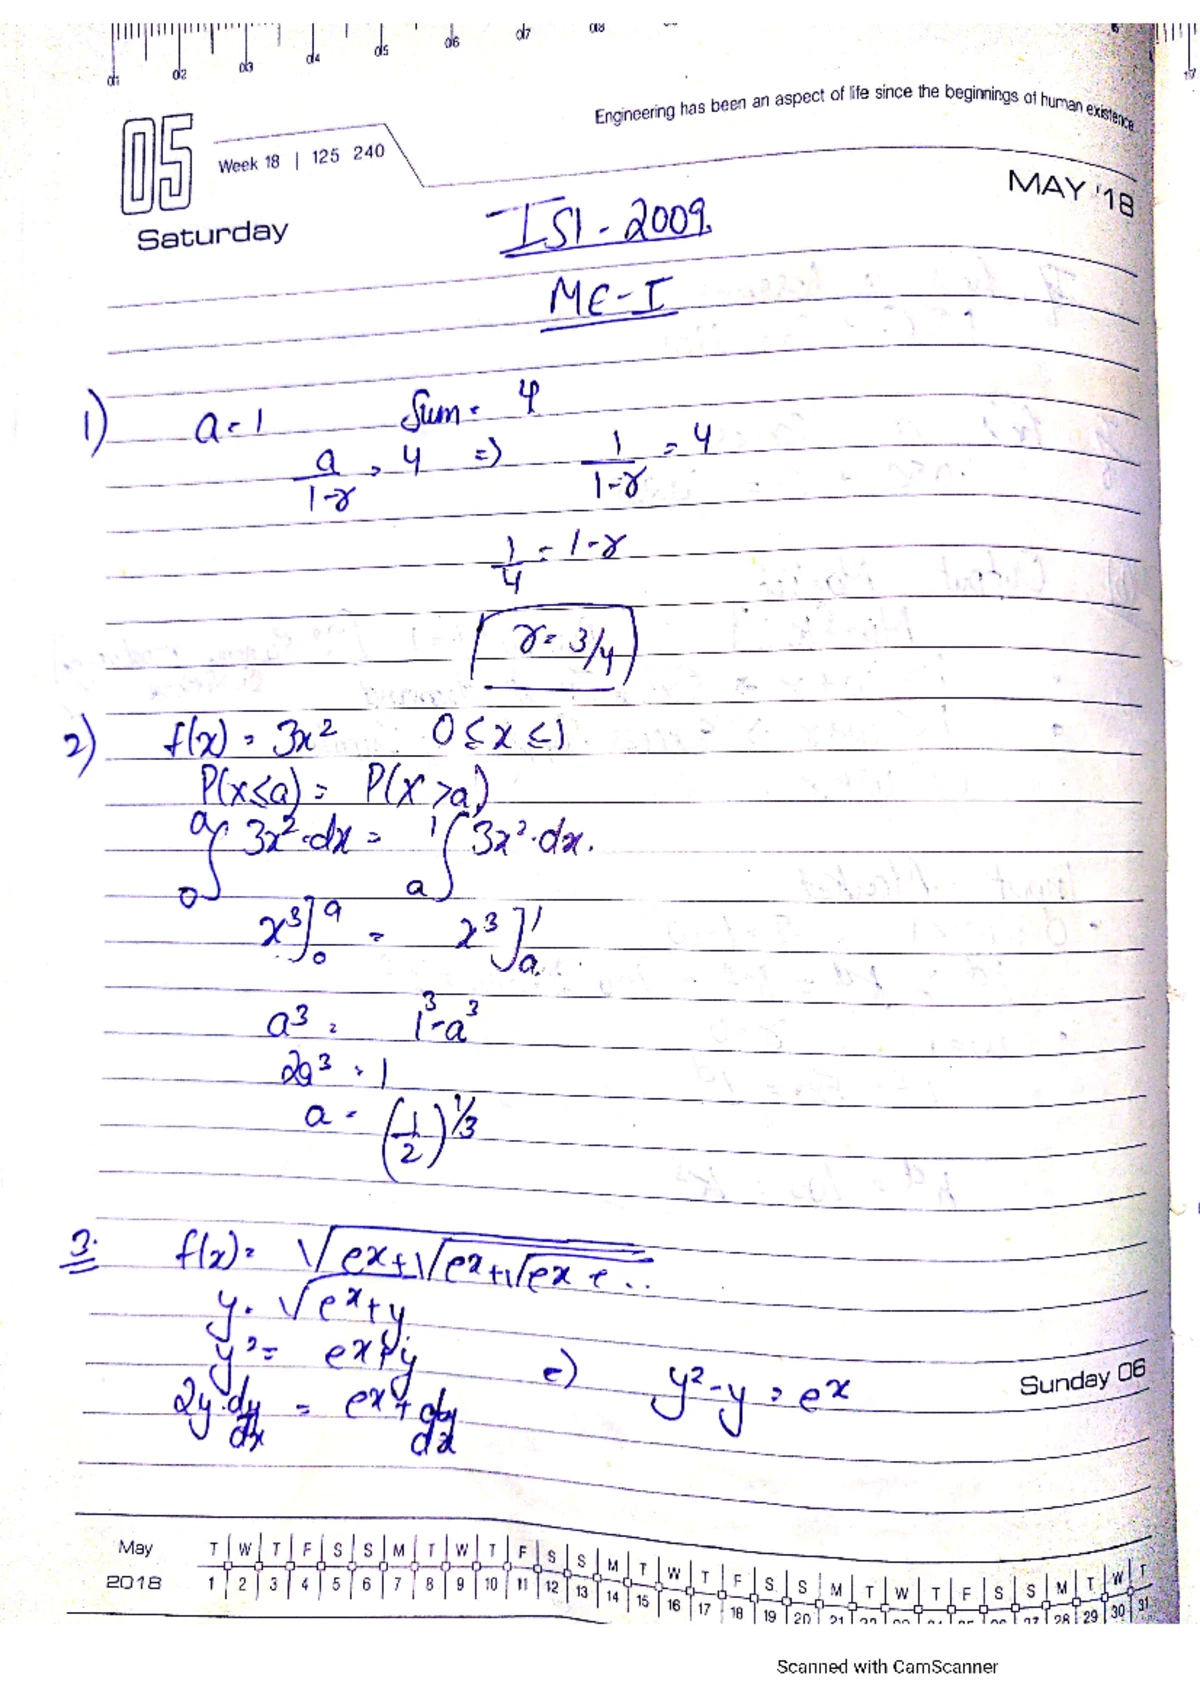 d1 d2 d3 d4 d5 d6 d7 d8
Engineering has been an aspect of life since the beginnings of human existence
05
Week 18 | 125 240
MAY '18
Saturday
ISI - 2009.
ME-I
1) a = 1 Sum = 4
a/(1-r) = 4 => 1/(1-r) = 4
1/4 = 1-r
r = 3/4
2) f(x) = 3x² 0 ≤ x ≤ 1
P(x≤a) = P(x>a)
∫₀ᵃ 3x²·dx = ∫ₐ¹ 3x²·dx.
x³]₀ᵃ = x³]ₐ¹
a³ = 1³-a³
2a³ = 1
a = (1/2)^1/3
3. f(x) = √(eˣ+√(eˣ+√(eˣ+...
y = √(eˣ+y)
y² = eˣ+y => y²-y = eˣ
Sunday 06
2y·dy/dx = eˣ + dy/dx
May T W T F S S M T W T F S S M T W T F S S M T W T F S S M T W T
2018 1 2 3 4 5 6 7 8 9 10 11 12 13 14 15 16 17 18 19 20 21 27 28 29 30 31
Scanned with CamScanner